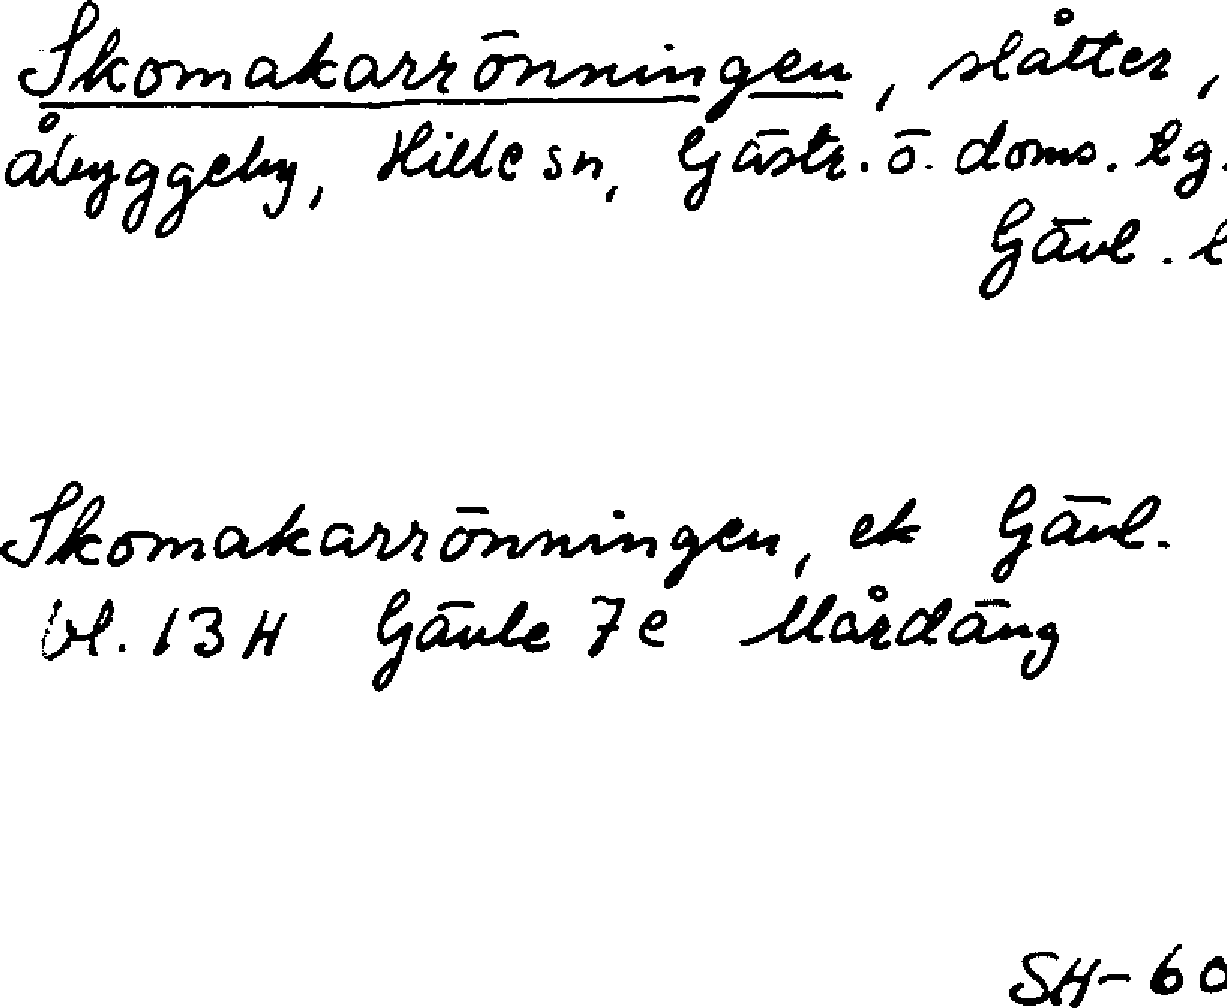 Skomakarrönningen, slåtter,
Åbyggeby, Hille sn, Gästr. ö. doms. lg.
Gävl. l
Skomakarrönningen, ek Gävl.
bl. 13H Gävle 7c Mårdäng
SH-60